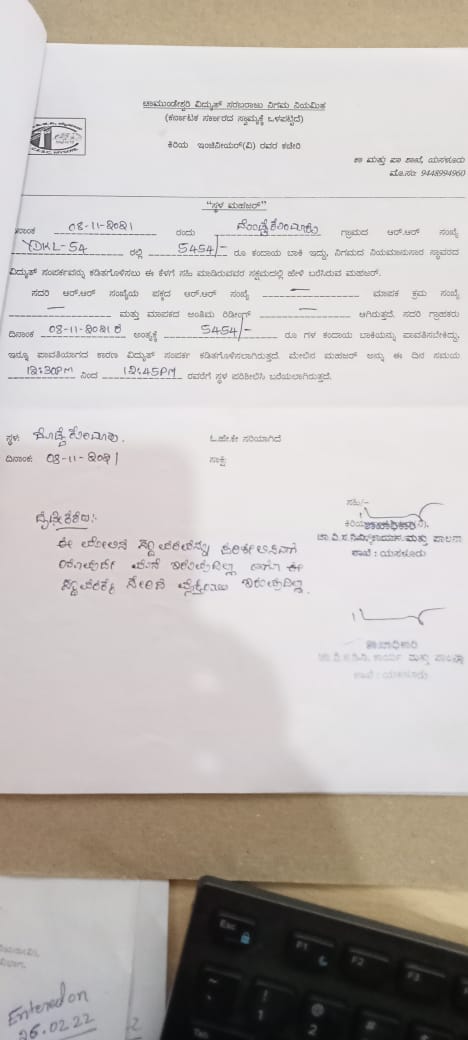 ಚಾಮುಂಡೇಶ್ವರಿ ವಿದ್ಯುತ್ ಸರಬರಾಜು ನಿಗಮ ನಿಯಮಿತ
(ಕರ್ನಾಟಕ ಸರ್ಕಾರದ ಸ್ವಾಮ್ಯಕ್ಕೆ ಒಳಪಟ್ಟಿದೆ)
ಕಿರಿಯ ಇಂಜಿನೀಯರ್(ವಿ) ರವರ ಕಚೇರಿ
ಕಾ ಮತ್ತು ಪಾ ಶಾಖೆ, ಯಸಳೂರು
ಮೊ.ಸಂ: 9448994960
"ಸ್ಥಳ ಮಹಜರ್"
08-11-2021 ರಂದು ಗ್ರಾಮದ ಆರ್.ಆರ್ ಸಂಖ್ಯೆ
YDKL-54 ರಲ್ಲಿ 5454/- ರೂ ಕಂದಾಯ ಬಾಕಿ ಇದ್ದು, ನಿಗಮದ ನಿಯಮಾನುಸಾರ ಸ್ಥಾವರದ
ವಿದ್ಯುತ್ ಸಂಪರ್ಕವನ್ನು ಕಡಿತಗೊಳಿಸಲು ಈ ಕೆಳಗೆ ಸಹಿ ಮಾಡಿರುವವರ ಸಕ್ಷಮದಲ್ಲಿ ಹೇಳಿ ಬರೆಸಿರುವ ಮಹಜರ್.
ಸದರಿ ಆರ್.ಆರ್ ಸಂಖ್ಯೆಯ ಪಕ್ಕದ ಆರ್.ಆರ್ ಸಂಖ್ಯೆ — ಮಾಪಕ ಕ್ರಮ ಸಂಖ್ಯೆ
— ಮತ್ತು ಮಾಪಕದ ಅಂತಿಮ ರಿಡೀಂಗ್ — ಆಗಿರುತ್ತದೆ. ಸದರಿ ಗ್ರಾಹಕರು
ದಿನಾಂಕ 08-11-2021 ರ ಅಂತ್ಯಕ್ಕೆ 5454/- ರೂ ಗಳ ಕಂದಾಯ ಬಾಕಿಯನ್ನು ಪಾವತಿಸಬೇಕಿದ್ದು,
ಇನ್ನೂ ಪಾವತಿಯಾಗದ ಕಾರಣ ವಿದ್ಯುತ್ ಸಂಪರ್ಕ ಕಡಿತಗೊಳಿಸಲಾಗಿರುತ್ತದೆ. ಮೇಲಿನ ಮಹಜರ್ ಅನ್ನು ಈ ದಿನ ಸಮಯ
12:30PM ನಿಂದ 12:45PM ರವರೆಗೆ ಸ್ಥಳ ಪರಿಶೀಲಿಸಿ ಬರೆಯಲಾಗಿರುತ್ತದೆ.
ಸ್ಥಳ:
ಓ.ಹೇ.ಕೇ ಸರಿಯಾಗಿದೆ
ದಿನಾಂಕ: 08-11-2021
ಸಾಕ್ಷಿ:
ಸಹಿ/-
ಶಾಖಾಧಿಕಾರಿ
ಚಾ.ವಿ.ಸ.ನಿ.ನಿ, ಕಾರ್ಯ ಮತ್ತು ಪಾಲನಾ
ಶಾಖೆ : ಯಸಳೂರು
ಈ ಮೇಲಿನ ಸ್ಥಾವರವನ್ನು ಪರಿಶೀಲಿಸಲಾಗಿ
ಯಾವುದೇ ಮನೆ ಇರುವುದಿಲ್ಲ ಹಾಗೂ ಈ
ಸ್ಥಾವರಕ್ಕೆ ಸೇರಿದ ವ್ಯಕ್ತಿಯು ಇರುವುದಿಲ್ಲ.
ಶಾಖಾಧಿಕಾರಿ
ಚಾ.ವಿ.ಸ.ನಿ.ನಿ, ಕಾರ್ಯ ಮತ್ತು ಪಾಲನಾ
ಶಾಖೆ : ಯಸಳೂರು
Entered on
26.02.22
Esc
F1
F2
F3
!
1
@
2
#